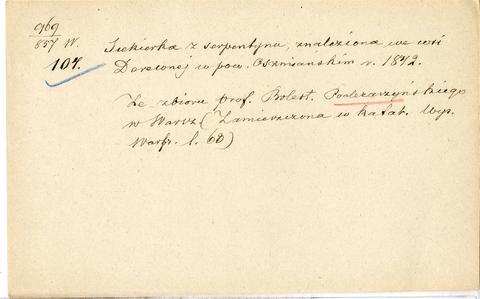 969
857 W.
104.
Siekierka z serpentynu, znaleziona we wsi
Derewnej w pow. Oszmiańskim r. 1842.
Ze zbioru prof. Bolest. Podczaszyńskiego
w Warsz (Zamieszczona w katal. Wys.
Warsz. l. 68)